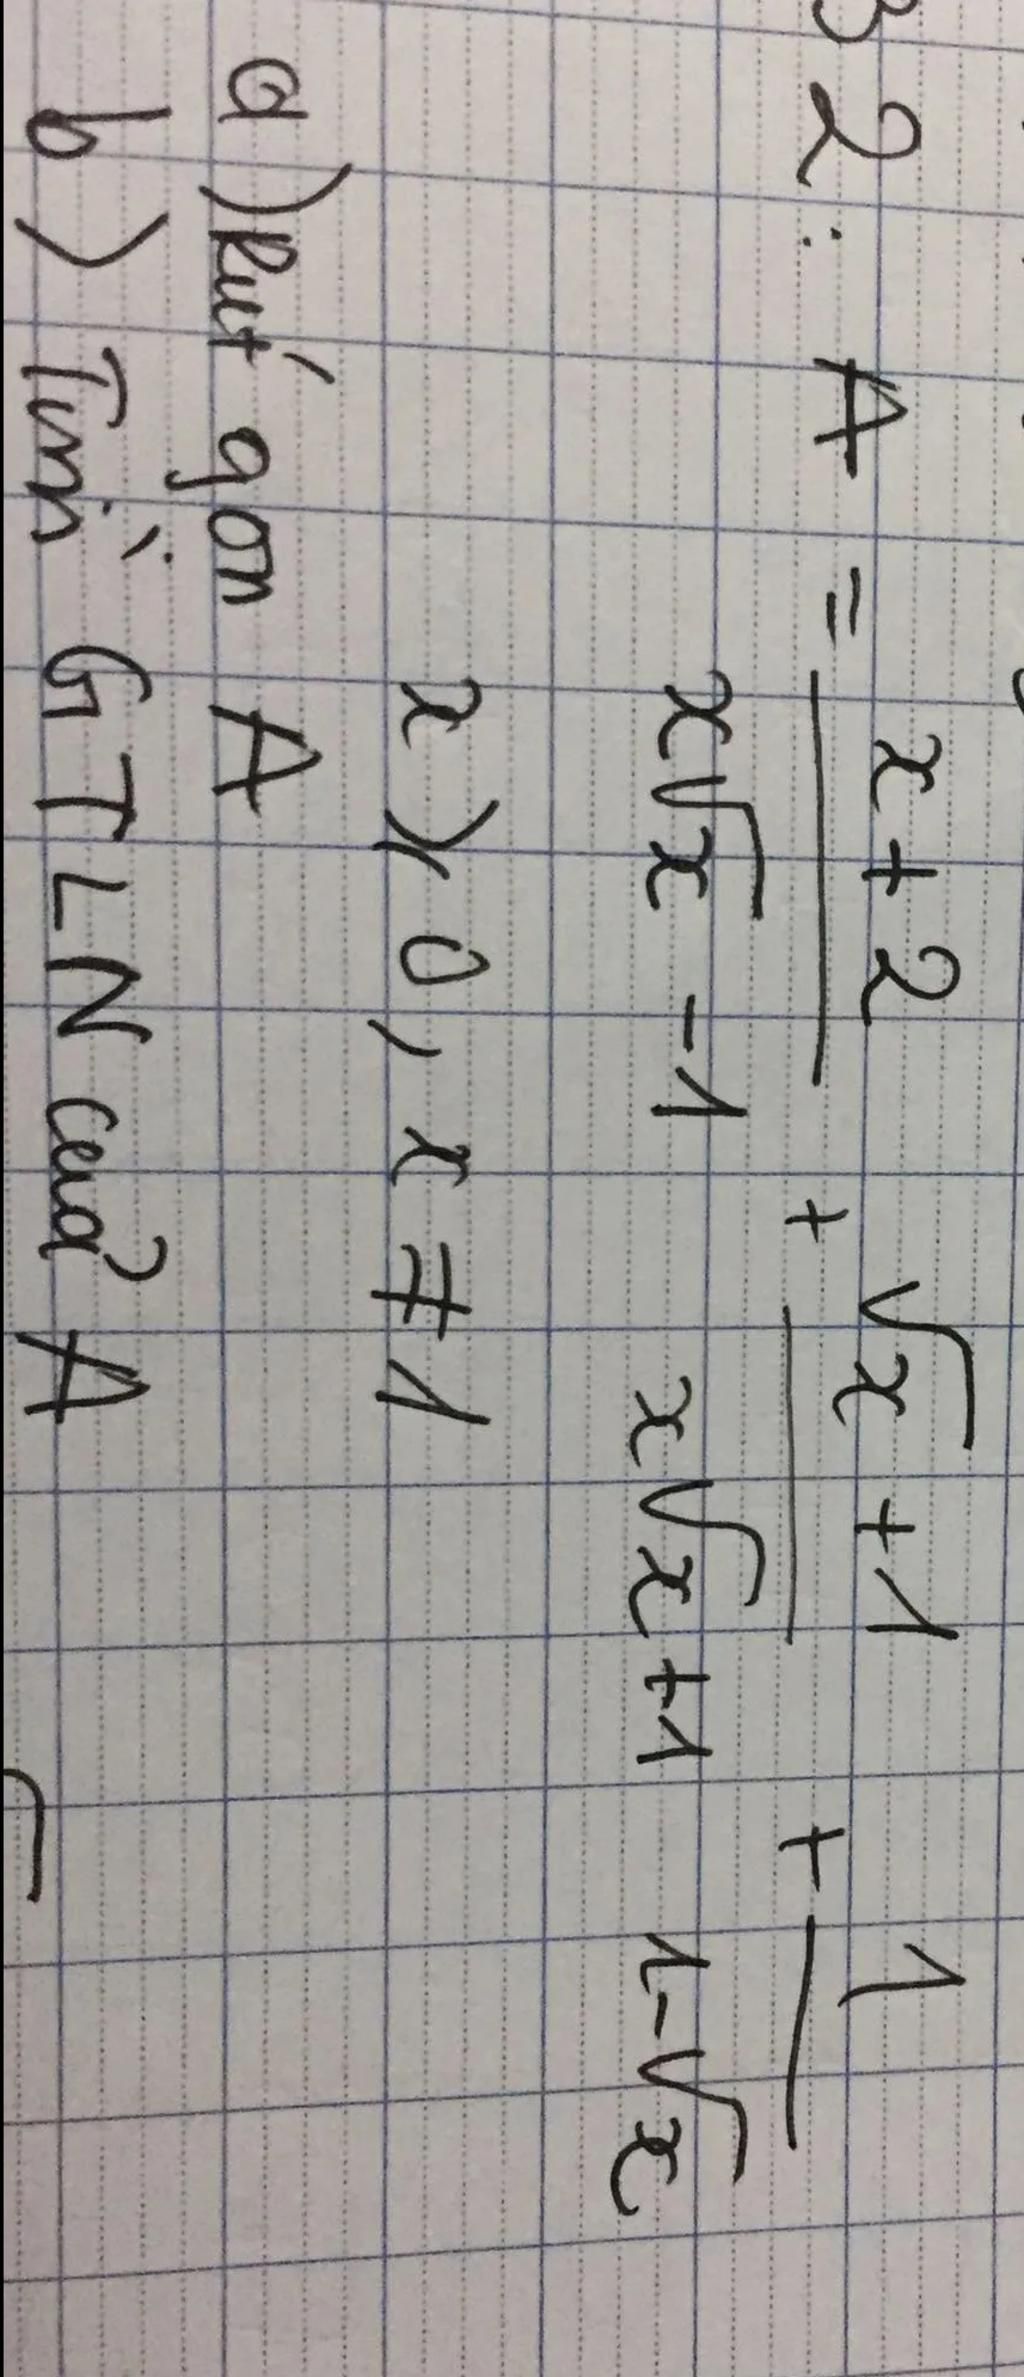 B2: A = \frac{x+2}{x\sqrt{x}-1} + \frac{\sqrt{x}+1}{x\sqrt{x}+1} + \frac{1}{1-\sqrt{x}}
x ⩾ 0, x ≠ 1
a) Rút gọn A
b) Tìm GTLN của A